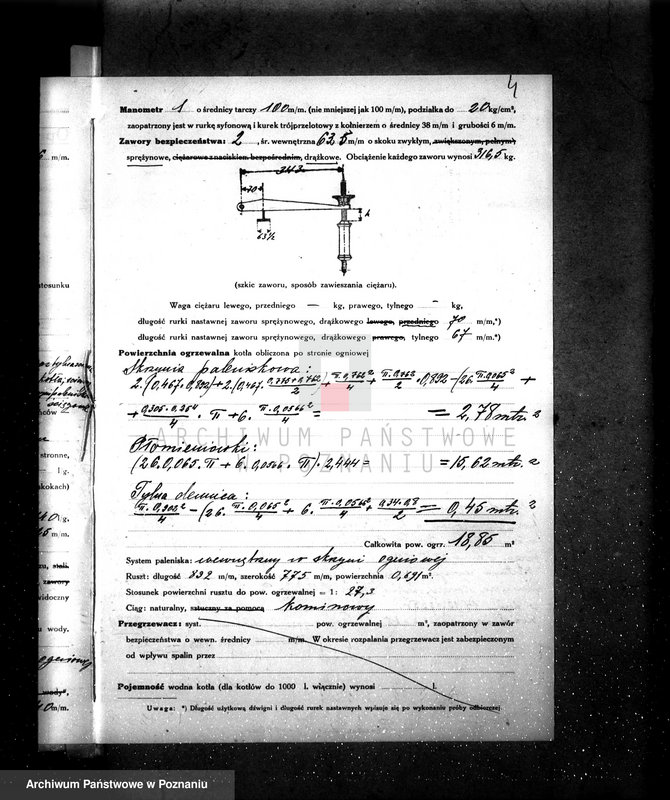 4
Manometr 1 o średnicy tarczy 100 m/m. (nie mniejszej jak 100 m/m), podziałka do 20 kg/cm²,
zaopatrzony jest w rurkę syfonową i kurek trójprzelotowy z kołnierzem o średnicy 38 m/m i grubości 6 m/m.
Zawory bezpieczeństwa: 2, śr. wewnętrzna 63,5 m/m o skoku zwykłym, zwiększonym, pełnym)
sprężynowe, ciężarowe z naciskiem bezpośrednim, drążkowe. Obciążenie każdego zaworu wynosi 316,5 kg.
343
70
h
63½
(szkic zaworu, sposób zawieszania ciężaru).
Waga ciężaru lewego, przedniego — kg, prawego, tylnego - kg,
długość rurki nastawnej zaworu sprężynowego, drążkowego lewego, przedniego 70 m/m,*)
długość rurki nastawnej zaworu sprężynowego, drążkowego prawego, tylnego 67 m/m.*)
Powierzchnia ogrzewalna kotła obliczona po stronie ogniowej
Skrzynia paleniskowa:
= 2,78 mtr. 2
ARCHIWUM PAŃSTWOWE
W POZNANIU
Płomieniówki:
(26.0,065.π + 6.0,0566.π).2,444 = = 15,62 mtr. 2
Tylna dennica:
= 0,45 mtr. 2
Całkowita pow. ogrz. 18,85 m²
System paleniska: wewnętrzny w skrzyni ogniowej
Ruszt: długość 892 m/m, szerokość 775 m/m, powierzchnia 0,691 m².
Stosunek powierzchni rusztu do pow. ogrzewalnej = 1: 27,3
Ciąg: naturalny, sztuczny za pomocą kominowy
Przegrzewacz: syst. pow. ogrzewalnej m², zaopatrzony w zawór
bezpieczeństwa o wewn. średnicy m/m. W okresie rozpalania przegrzewacz jest zabezpieczonym
od wpływu spalin przez
Pojemność wodna kotła (dla kotłów do 1000 l. włącznie) wynosi l.
Uwaga: *) Długość użytkową dźwigni i długość rurek nastawnych wpisuje się po wykonaniu próby odbiorczej.
Archiwum Państwowe w Poznaniu